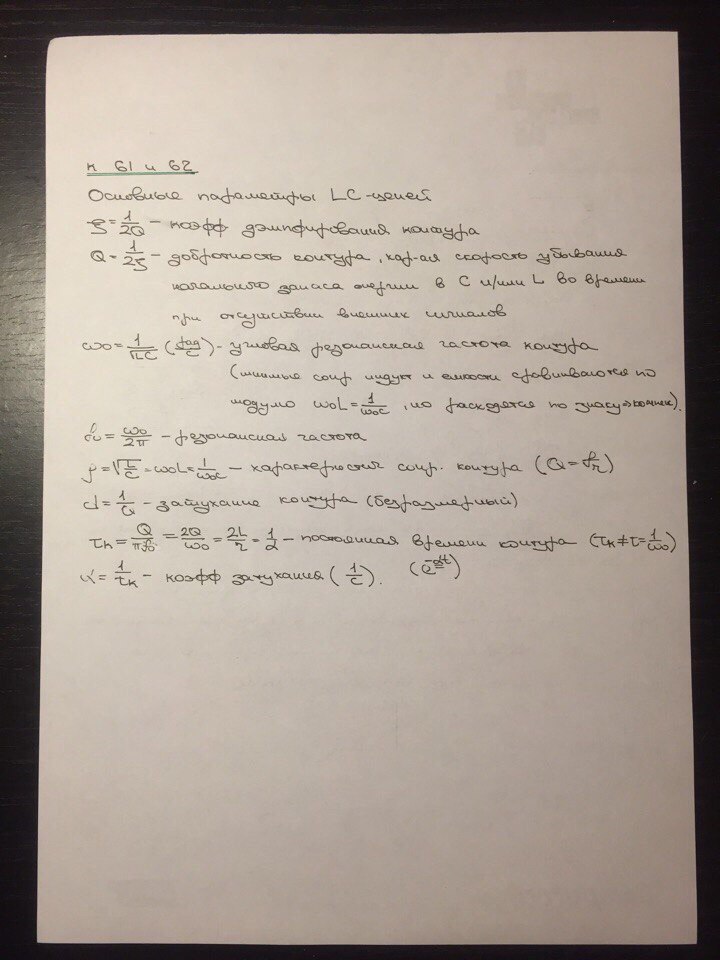 к 61 и 62
Основные параметры LC-цепей
ξ = 1/2Q – коэфф дэмпфирования контура
Q = 1/2ξ – добротность контура, хар-ая скорость убывания
начального запаса энергии в C и/или L во времени
при отсутствии внешних сигналов
ω0 = 1/√LC (рад/с) – угловая резонансная частота контура
(мнимые сопр индукт и емкости сравниваются по
модулю ω0L = 1/ω0C, но расходятся по знаку ⇒ компенс).
f0 = ω0/2π – резонансная частота
ρ = √L/C = ω0L = 1/ω0C – характеристич сопр. контура (Q = ρ/r)
d = 1/Q – затухание контура (безразмерный)
τk = Q/πf0 = 2Q/ω0 = 2L/r = 1/α – постоянная времени контура (τk ≠ τ = 1/ω0)
α = 1/τk – коэфф затухания (1/с). (e^-αt)